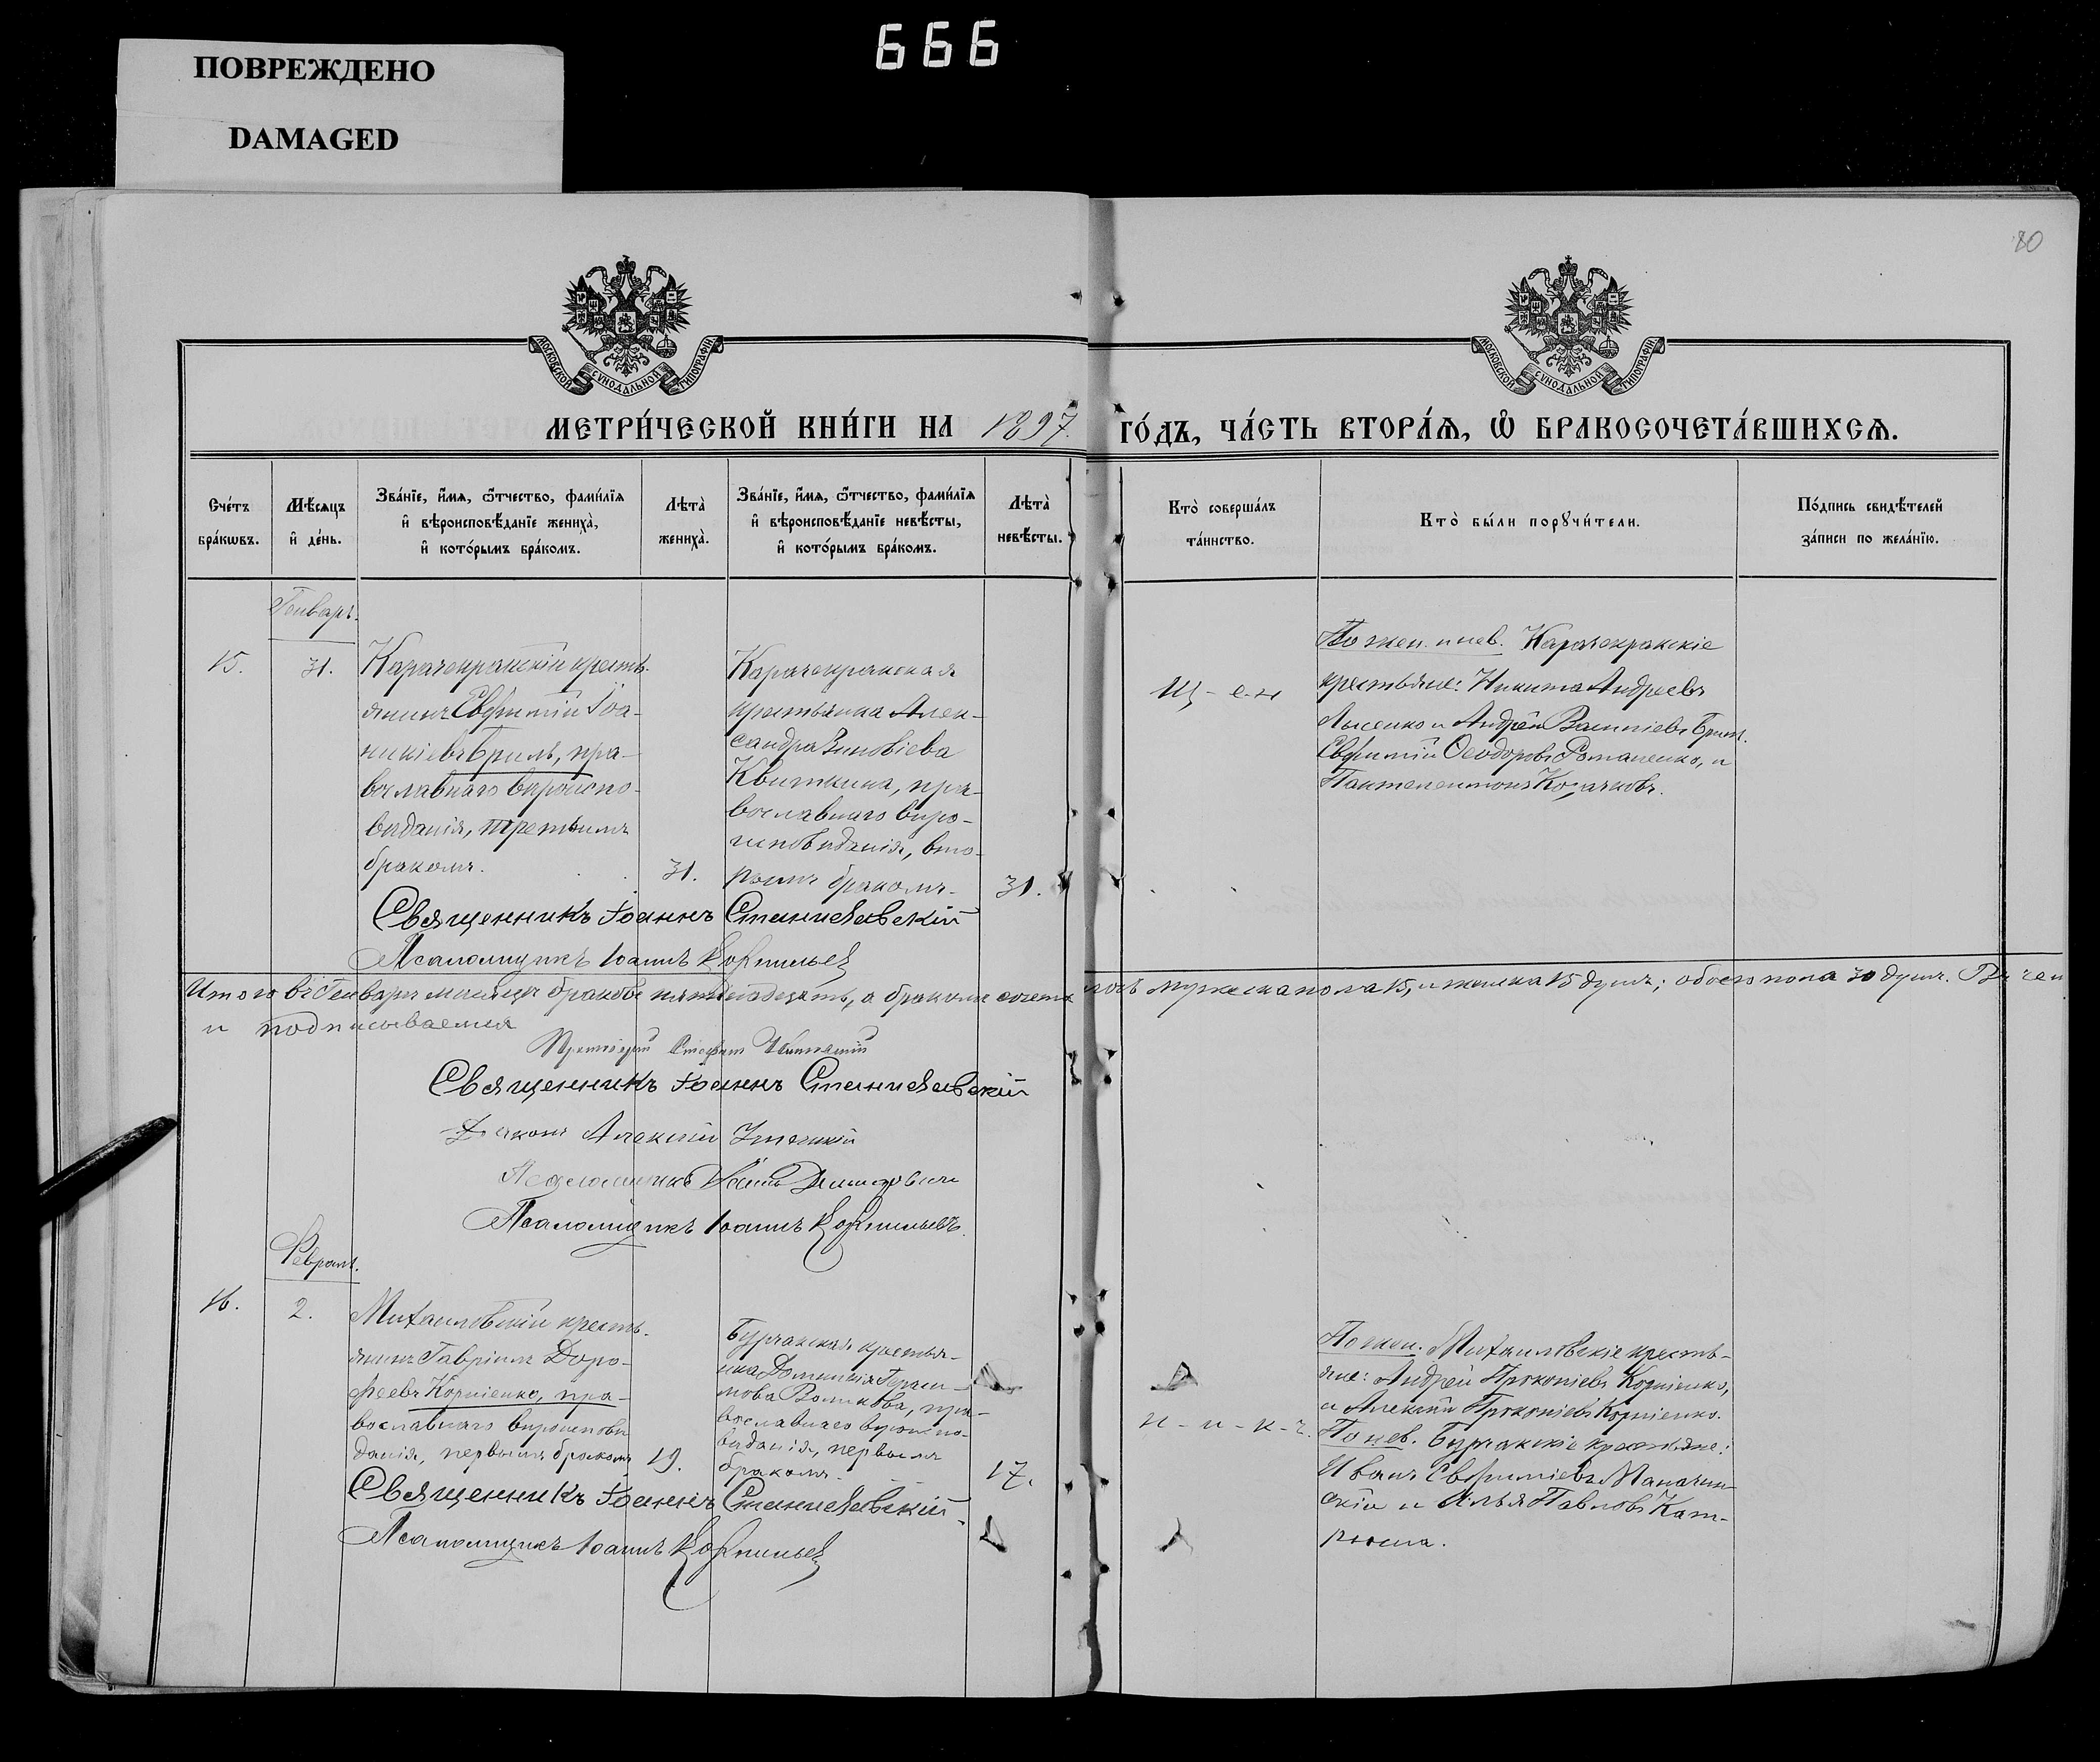 ПОВРЕЖДЕНО
DAMAGED
666
80
МОСКОВСКОЙ СУНОДАЛЬНОЙ ТИПОГРАФІИ
МОСКОВСКОЙ СУНОДАЛЬНОЙ ТИПОГРАФІИ
МЕТРИ́ЧЕСКОЙ КНИ́ГИ НА 1897 ГО́ДЪ, ЧА́СТЬ ВТОРА́Ѧ, Ѽ БРАКОСОЧЕТА́ВШИХСѦ.
Сче́тъ
бра́кѡвъ.
Мѣ́сяцъ
и҆ де́нь.
Зва́нїе, и҆́мѧ, ѻ҆́тчество, фами́лїѧ
и҆ вѣроисповѣ́данїе жениха̀,
и҆ кото́рымъ бра́комъ.
Лѣта̀
жениха̀.
Зва́нїе, и҆́мѧ, ѻ҆́тчество, фами́лїѧ
и҆ вѣроисповѣ́данїе невѣ́сты,
и҆ кото́рымъ бра́комъ.
Лѣта̀
невѣ́сты.
Кто̀ соверша́лъ
та́инство.
Кто̀ бы́ли порꙋчи́тели.
По́дпись свидѣ́телей
за́писи по жела́нїю.
Генварь.
15.
31.
Карачекракскій кресть-
янинъ Евфимій Іоа-
никіевъ Бриль, пра-
вославнаго вѣроиспо-
вѣданія, третьимъ
бракомъ.
31.
Карачекракская
крестьянка Алек-
сандра Зиновіева
Квиткина, пра-
вославнаго вѣро-
исповѣданія, вто-
рымъ бракомъ.
31.
По жен. и нев. Карачекракскіе
крестьяне: Никита Андреевъ
Лысенко и Андрей Бриль.
Евфимій Ѳеодоровъ Романенко, и
Пантелеимонъ Козачковъ.
Священникъ Іоаннъ Станиславскій
Псаломщикъ Іоаннъ Корнильев
Итого въ Генварѣ мѣсяцѣ браковъ пятьнадцать, а бракомъ мужеска пола 15, и женска 15 душъ; обоего пола 30 душъ. Въ чем
и подписываемся
Протоіерей Стефанъ
Священникъ Іоаннъ Станиславскій
Діаконъ Алексій
Псаломщикъ
Псаломщикъ Іоаннъ Корнильевъ.
Февраль.
16.
2.
Михаиловскій кресть-
янинъ Гавріилъ Доро-
феевъ Корніенко, пра-
вославнаго вѣроисповѣ
данія, первымъ бракомъ
19.
Бурчакская крестья-
нка Домникія Гераси-
мова Воликова, пра-
вославнаго вѣроиспо-
вѣданія, первымъ
бракомъ.
17.
По жен. Михаиловскіе кресть-
яне: Андрей Прокопіевъ Корніенко,
и Алексій Прокопіевъ Корніенко.
По нев. Бурчакскіе крестьяне:
Иванъ Евфиміевъ Маначин-
скій и Илья Павловъ Кат-
рюша.
Священникъ Іоаннъ Станиславскій
Псаломщикъ Іоаннъ Корнильев